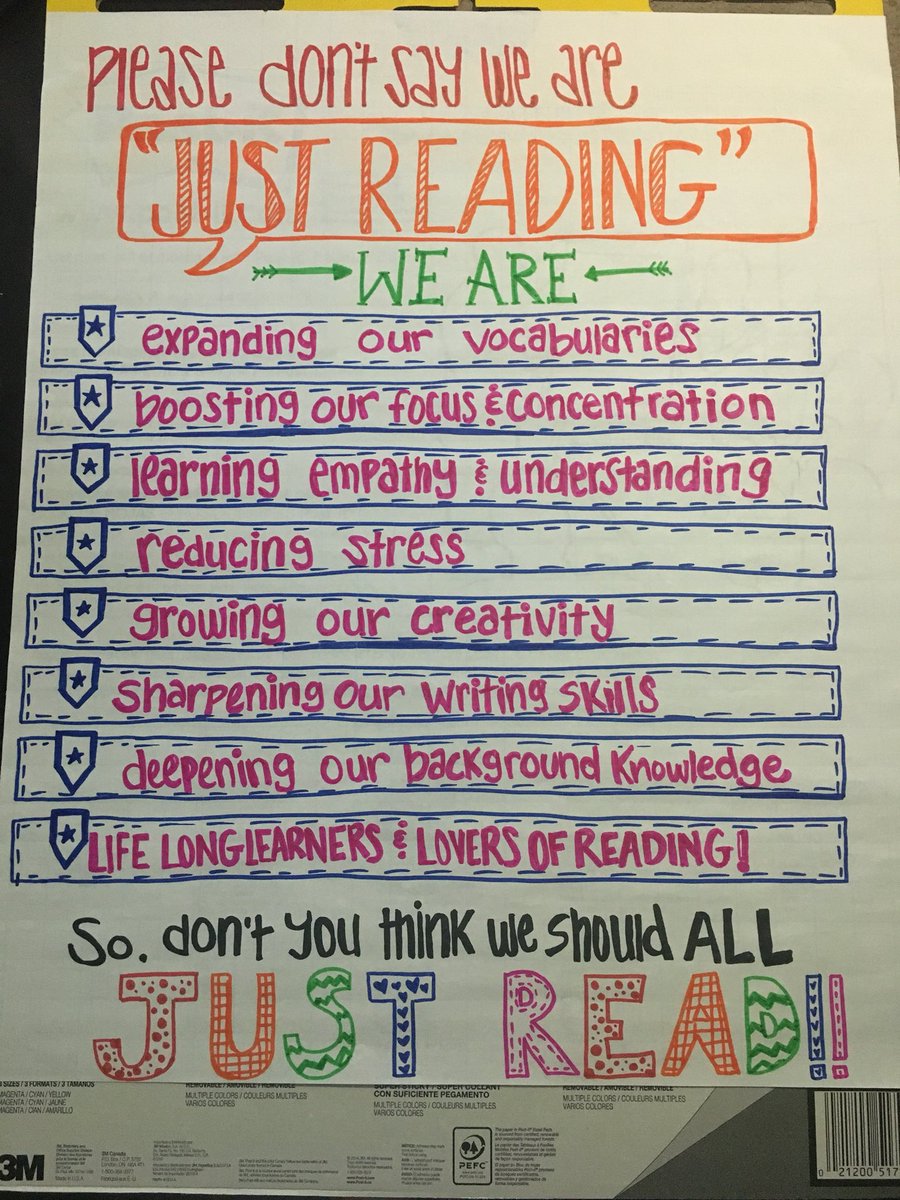 Please don't say we are
"JUST READING"
WE ARE
expanding our vocabularies
boosting our focus & concentration
learning empathy & understanding
reducing stress
growing our creativity
sharpening our writing skills
deepening our background knowledge
LIFE LONG LEARNERS & LOVERS OF READING!
So. don't you think we should ALL
JUST READ!!
3 SIZES / 3 FORMATS / 3 TAMAÑOS
MAGENTA / CYAN / YELLOW
MAGENTA / CYAN / JAUNE
MAGENTA / CIAN / AMARILLO
REMOVABLE / AMOVIBLE / REMOVIBLE
MULTIPLE COLORS / COULEURS MULTIPLES
VARIOS COLORES
SUPER STICKY / SUPER COLLANT
CON SUFICIENTE PEGAMENTO
MULTIPLE COLORS / COULEURS MULTIPLES
VARIOS COLORES
REMOVABLE / AMOVIBLE / REMOVIBLE
MULTIPLE COLORS / COULEURS MULTIPLES
VARIOS COLORES
3M
3M Canada
London, ON
Made in U.S.A.
PEFC
0 21200 517